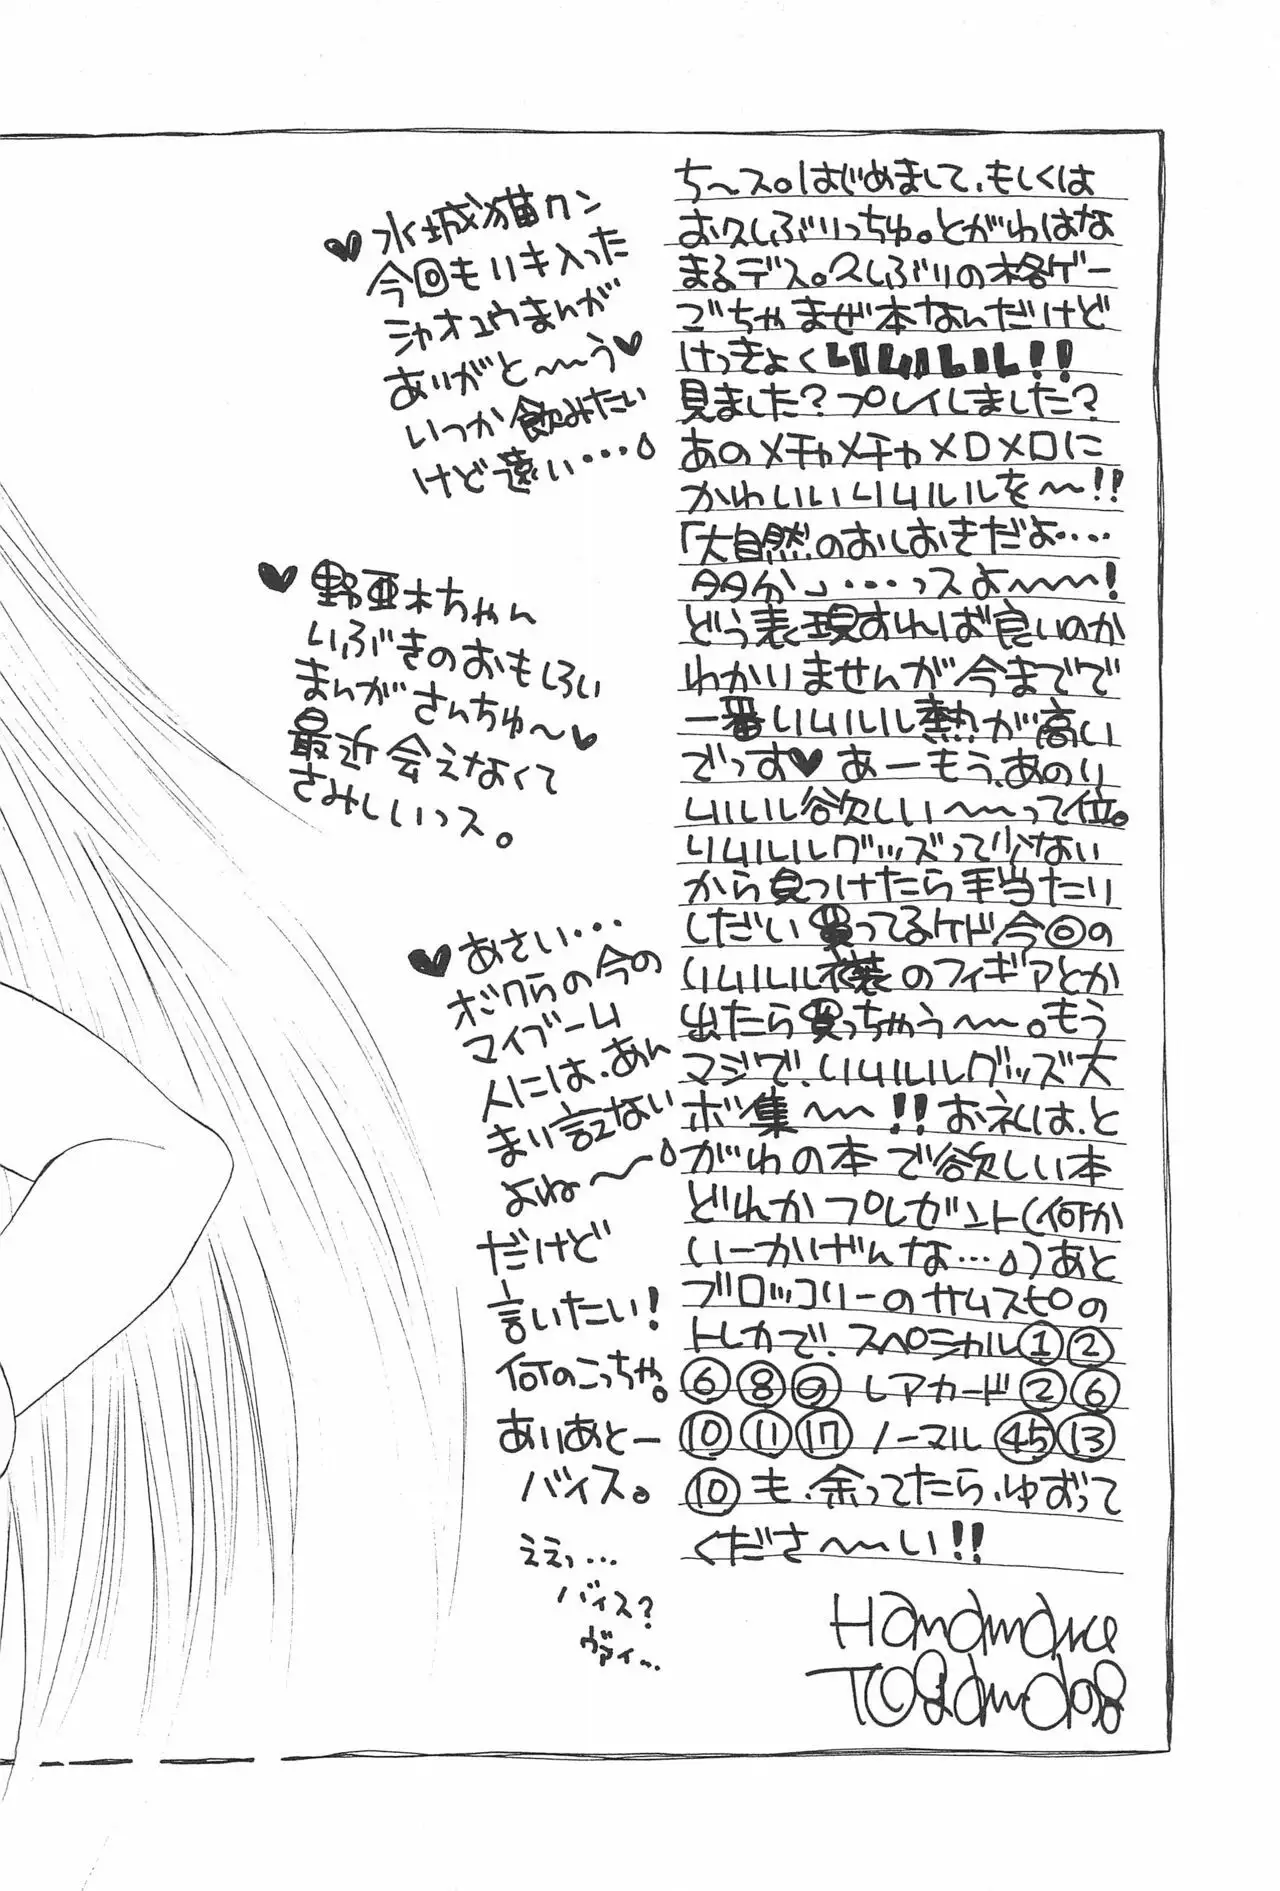 ち〜ス。はじめまして、もしくは
お久しぶりっちゅ。とがわはな
まるデス。久しぶりの格ゲー
ごちゃまぜ本なんだけど
けっきょくリムルル!!
見ました?プレイしました?
あのメチャメチャメロメロに
かわいいリムルルを〜!!
「大自然のおしおきだよ‥‥
多分」‥‥っスよ〜〜!
どう表現すれば良いのか
わかりませんが今までで
一番リムルル熱が高い
でっす♥あーもう、あのリ
ムルル欲しい〜〜って位。
リムルルグッズって少ない
から見つけたら手当たり
しだい買ってるケド今回の
リムルル衣装のフィギアとか
出たら買っちゃう〜〜。もう
マジで、リムルルグッズ大
ボ集〜〜!!お礼は、と
がわの本で欲しい本
どれかプレゼント(何か
いーかげんな…)あと
ブロッコリーのサムスピの
トレカで、スペシャル①②
⑥⑧⑨レアカード②⑥
⑩⑪⑰ノーマル㊺⑬
⑩も、余ってたら、ゆずって
くださ〜〜い!!
Handmaice
♥水城猫クン
今回もリキ入った
シャオユウまんが
ありがと〜〜う♥
いつか飲みたい
けど遠い‥‥
♥野亜木ちゃん
いぶきのおもしろい
まんがさんちゅ〜♥
最近会えなくて
さみしいっス。
♥あさい…
ボクらの今の
マイブーム
人には、あん
まり言えない
よね〜〜
だけど
言いたい!
何のこっちゃ。
ありあとー
バイス。
ええっ…
バイス?
ヴァイ…